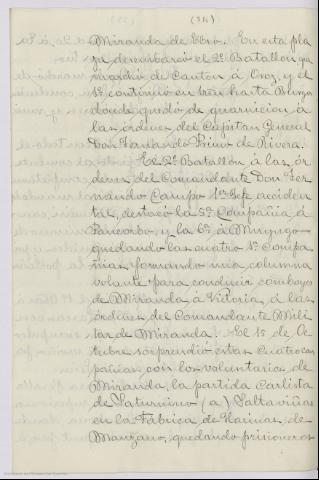 (34)
Miranda de Ebro. En esta pla
za desembarcó el 2º Batallon que
marchó de Canton á Oroz, y el
1º continuó en tren hasta Burgos
donde quedó de guarnicion á
las órdenes del Capitan General
Don Fernando Primo de Rivera.
El 2º Batallon á las ór
denes del Comandante Don Fer
nando Campo 1er Jefe acciden
tal, destacó la 5ª Compañia á
Pancorbo y la 6ª á
quedando las cuatro 1as Compa
ñias formando una columna
volante para conducir comboyes
de Miranda á Vitoria, á las
órdenes del Comandante Mili
tar de Miranda. El 15 de Oc
tubre sorprendió estas cuatro com
pañias con los voluntarios de
Miranda, la partida Carlista
de Saturnino (a) Saltaviñas
en la Fábrica de Harinas de
Manzano, quedando prisioneros